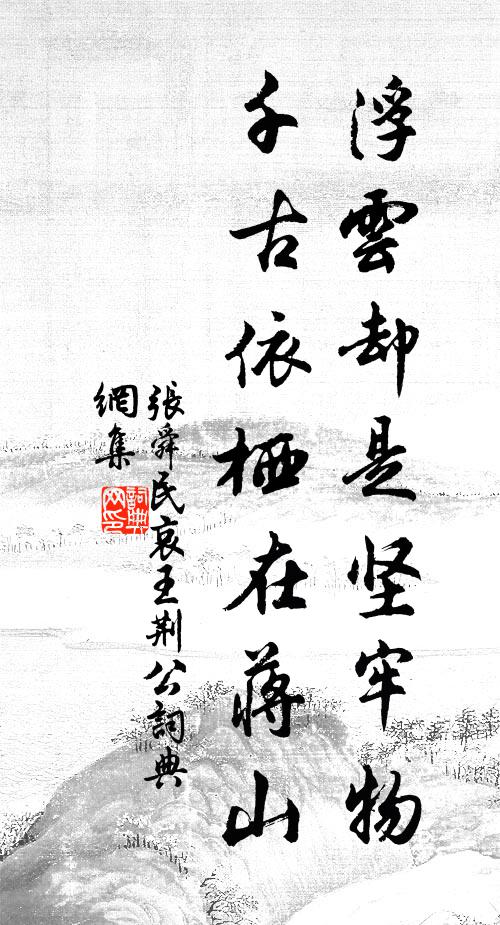 浮雲却是坚牢物
千古依栖在蔣山
張舜民哀王荆公詞典
網集
詞典网印